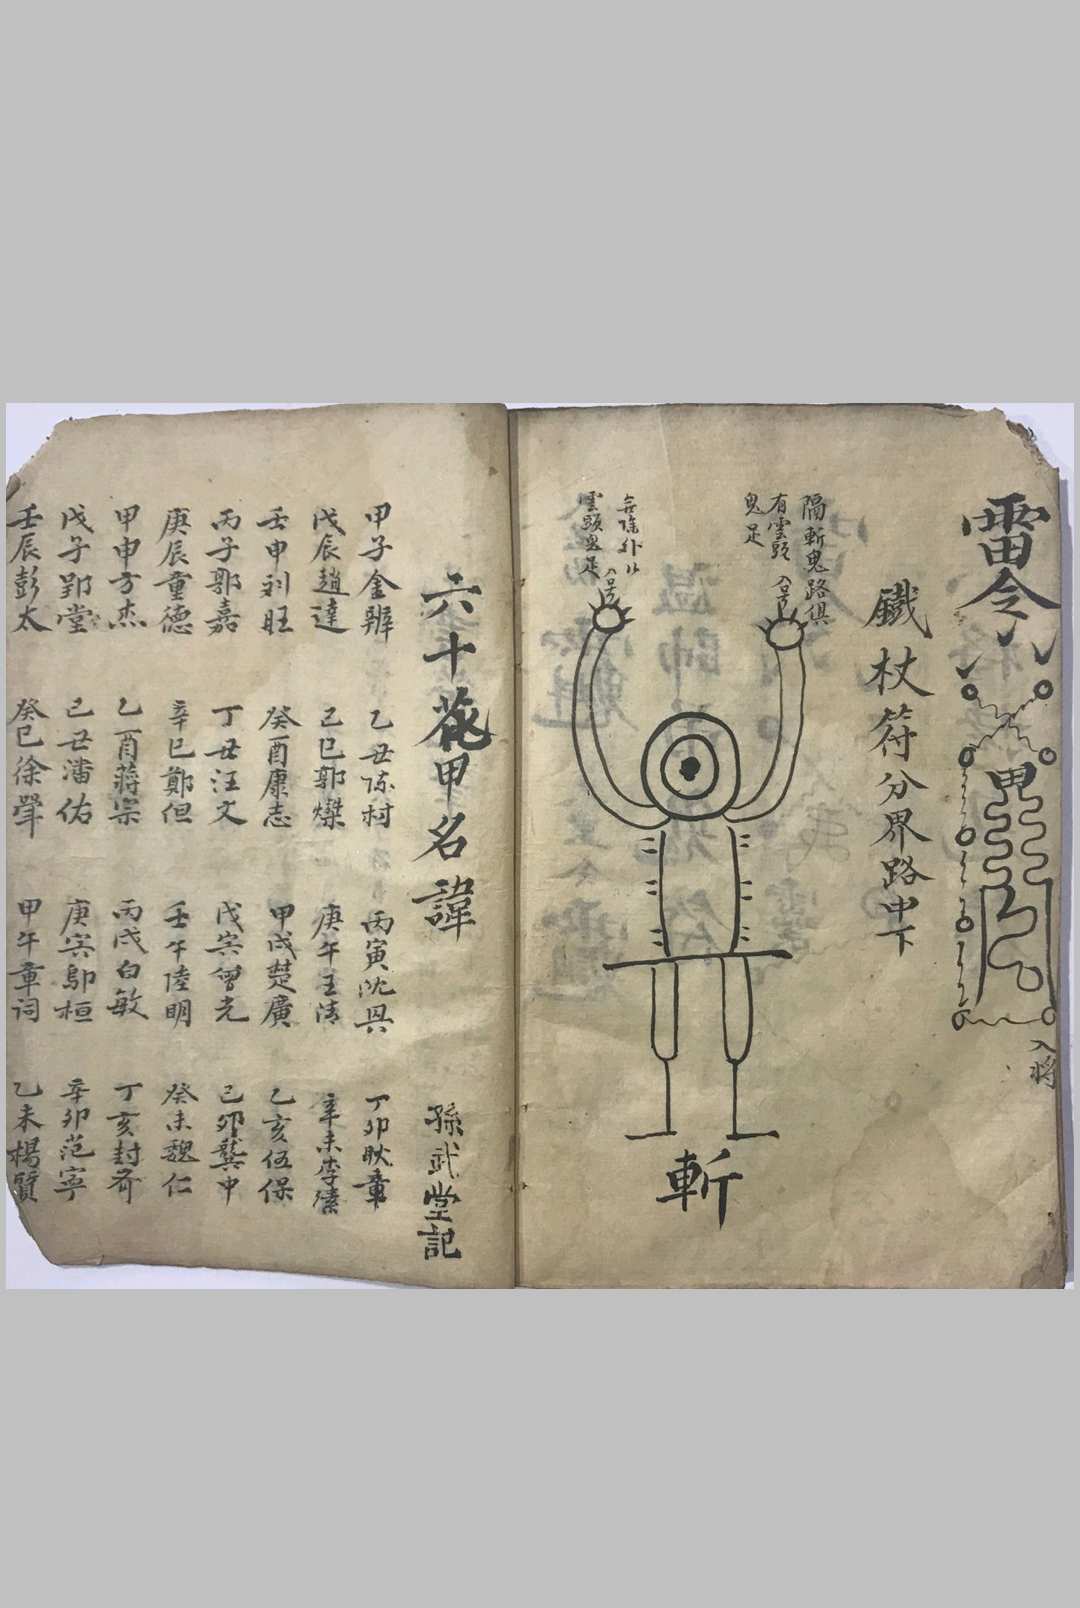 雷令
甲
入將
鐵杖符分界路中下
隔斬鬼路俱
有雲頭 入号
鬼足
入号
雲頭鬼足
斬
六十花甲名諱 孫武堂記
甲子金辦 乙丑陈材 丙寅沈興 丁卯耿章
戊辰趙達 己巳郭燦 庚午王清 辛未李素
壬申刘旺 癸酉康志 甲戌楚廣 乙亥伍保
丙子郭嘉 丁丑汪文 戊寅曾光 己卯龔中
庚辰童德 辛巳鄭但 壬午陸明 癸未魏仁
甲申方杰 乙酉蔣崇 丙戌白敏 丁亥封齐
戊子郢堂 己丑潘佑 庚寅鄔桓 辛卯范寧
壬辰彭太 癸巳徐聲 甲午章词 乙未楊賢